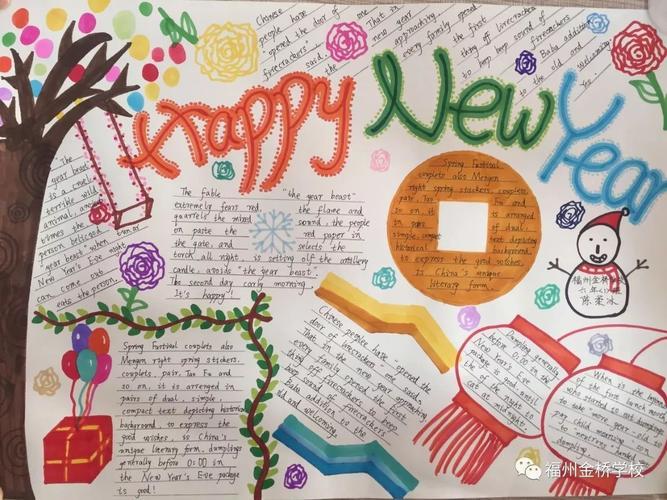 Chinese
people have
opened the door of
firecrackers
said, the
That in
new year
approaching
every family opened
the first
thing off firecrackers
to beep beep sound of
firecrackers
Baba addition
to the old and
welcoming
Happy New Year
The
year beast
is a cruel,
terrible wild
animal, ancient
times the
person believed
"year beast" when
New Year's Eve night
can come out
eats the person.
The fable "the year beast"
extremely fears red, the flame and
quarrels the mixed sound, the people
on paste the red paper in
the gate, and selects the
torch all night, is setting off the artillery
candle, avoids "the year beast".
The second day early morning.
It's happy!
Spring Festival
couplets also Mengen
right spring stickers, couplets,
pair, Tao Fu and
so on, it is arranged
in pairs of dual,
simple, compact text depicting
historical background,
to express the good wishes,
is China's unique
literary form.
福州金桥学校
陈柔冰
Spring Festival couplets also
Mengen right spring stickers,
couplets, pair, Tao Fu and
so on, it is arranged in
pairs of dual, simple,
compact text depicting historical
background, to express the
good wishes, is China's
unique literary form, dumplings
generally before 0:00 in
the New Year's Eve package
is good!
Chinese people have opened the
door of firecrackers said,
That in one new year approaching
every family opened the first
thing off firecrackers to beep
beep sound of firecrackers
Baba addition to the
old and welcoming.
Dumpling generally
before 0:00 in the
New Year's Eve
package is good until
the of the night to
eat at midnight.
When is the
who started to eat dumplings
to take more year-old to
pay child morning son
to nextrius, handed
dumpling
福州金桥学校